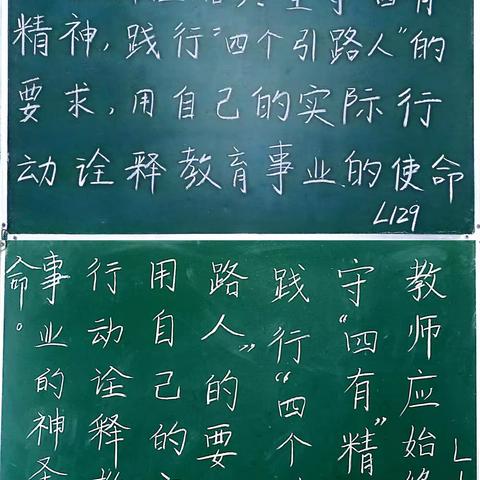 精神，践行“四个引路人”的
要求，用自己的实际行
动诠释教育事业的使命
L129
教师应始终
守“四有”精
践行“四个
路人”的要
用自己的
行动诠释教
事业的神圣
命。